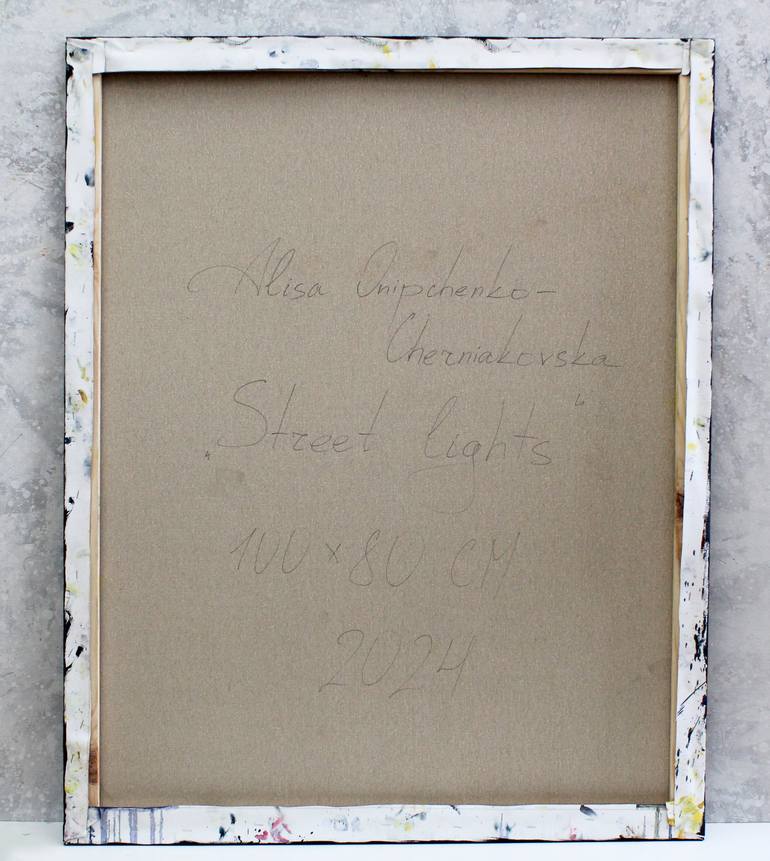 Alisa Onipchenko-
Cherniakovska
„Street lights“
100 x 80 CM
2024